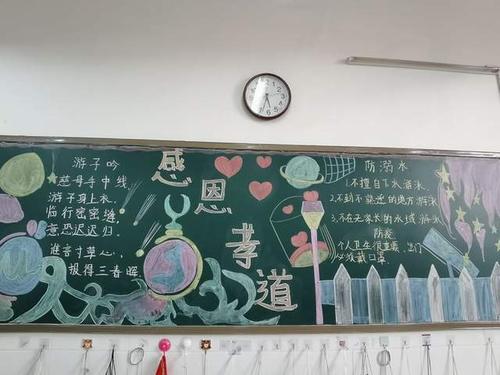 游子吟
慈母手中线
游子身上衣.
临行密密缝
意恐迟迟归.
谁言寸草心,
报得三春晖
感恩孝道
防溺水
1.不擅自下水游泳.
2.不到不熟悉的地方游泳
3.不在无家长的水域游泳
防疫
个人卫生很重要,出门
必须戴口罩.